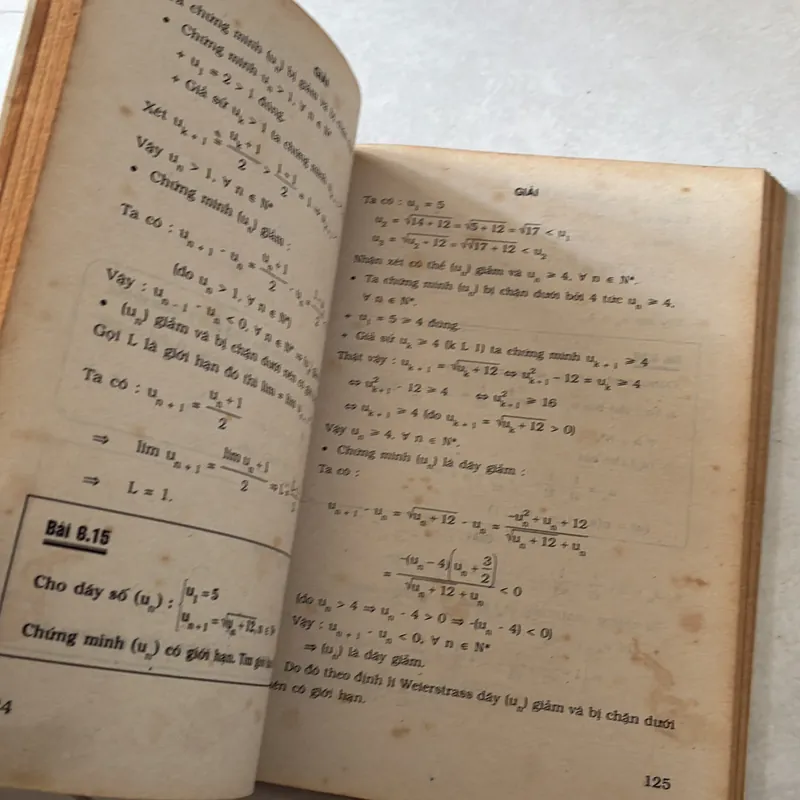 Ta chứng minh (uₙ) bị giảm và bị
GIẢI
• Chứng minh uₙ > 1, ∀ n ∈ N*
+ u₁ = 2 > 1 đúng.
+ Giả sử uₖ > 1 ta chứng minh
Xét uₖ₊₁ = (uₖ+1)/2 > (1+1)/2 = 1
Vậy uₙ > 1, ∀ n ∈ N*
• Chứng minh (uₙ) giảm :
Ta có : uₙ₊₁ - uₙ = (uₙ+1)/2 - uₙ =
(do uₙ > 1, ∀ n ∈ N*)
Vậy : uₙ₋₁ - uₙ < 0, ∀ n ∈ N*
• (uₙ) giảm và bị chặn dưới nên có
Gọi L là giới hạn đó thì lim = lim
Ta có : uₙ₊₁ = (uₙ+1)/2
⇒ lim uₙ₊₁ = (lim uₙ+1)/2
⇒ L = 1.
Bài 8.15
Cho dãy số (uₙ) : { u₁ = 5
uₙ₊₁ = √(uₙ + 12),
Chứng minh (uₙ) có giới hạn. Tìm
4
GIẢI
Ta có : u₁ = 5
u₂ = √(14 + 12) = √(5 + 12) = √17 < u₁
u₃ = √(u₂ + 12) = √(√17 + 12) < u₂
Nhận xét có thể (uₙ) giảm và uₙ ⩾ 4, ∀ n ∈ N*.
• Ta chứng minh (uₙ) bị chặn dưới bởi 4 tức uₙ ⩾ 4,
∀ n ∈ N*.
+ u₁ = 5 ⩾ 4 đúng.
+ Giả sử uₖ ⩾ 4 (k L 1) ta chứng minh uₖ₊₁ ⩾ 4
Thật vậy : uₖ₊₁ = √(uₖ + 12) ⇔ u²ₖ₊₁ - 12 = uₖ ⩾ 4
⇔ u²ₖ₊₁ - 12 ⩾ 4 ⇔ u²ₖ₊₁ ⩾ 16
⇔ uₖ₊₁ ⩾ 4 (do uₖ₊₁ = √(uₖ + 12) > 0)
Vậy uₙ ⩾ 4, ∀ n ∈ N*.
• Chứng minh (uₙ) là dãy giảm :
Ta có :
uₙ₊₁ - uₙ = √(uₙ + 12) - uₙ = (-uₙ² + uₙ + 12)/(√(uₙ + 12) + uₙ)
= (-(uₙ - 4)(uₙ + 3/2))/(√(uₙ + 12) + uₙ) < 0
(do uₙ > 4 ⇒ uₙ - 4 > 0 ⇒ -(uₙ - 4) < 0)
Vậy : uₙ₊₁ - uₙ < 0, ∀ n ∈ N*
⇒ (uₙ) là dãy giảm.
Do đó theo định lí Weierstrass dãy (uₙ) giảm và bị chặn dưới
nên có giới hạn.
125